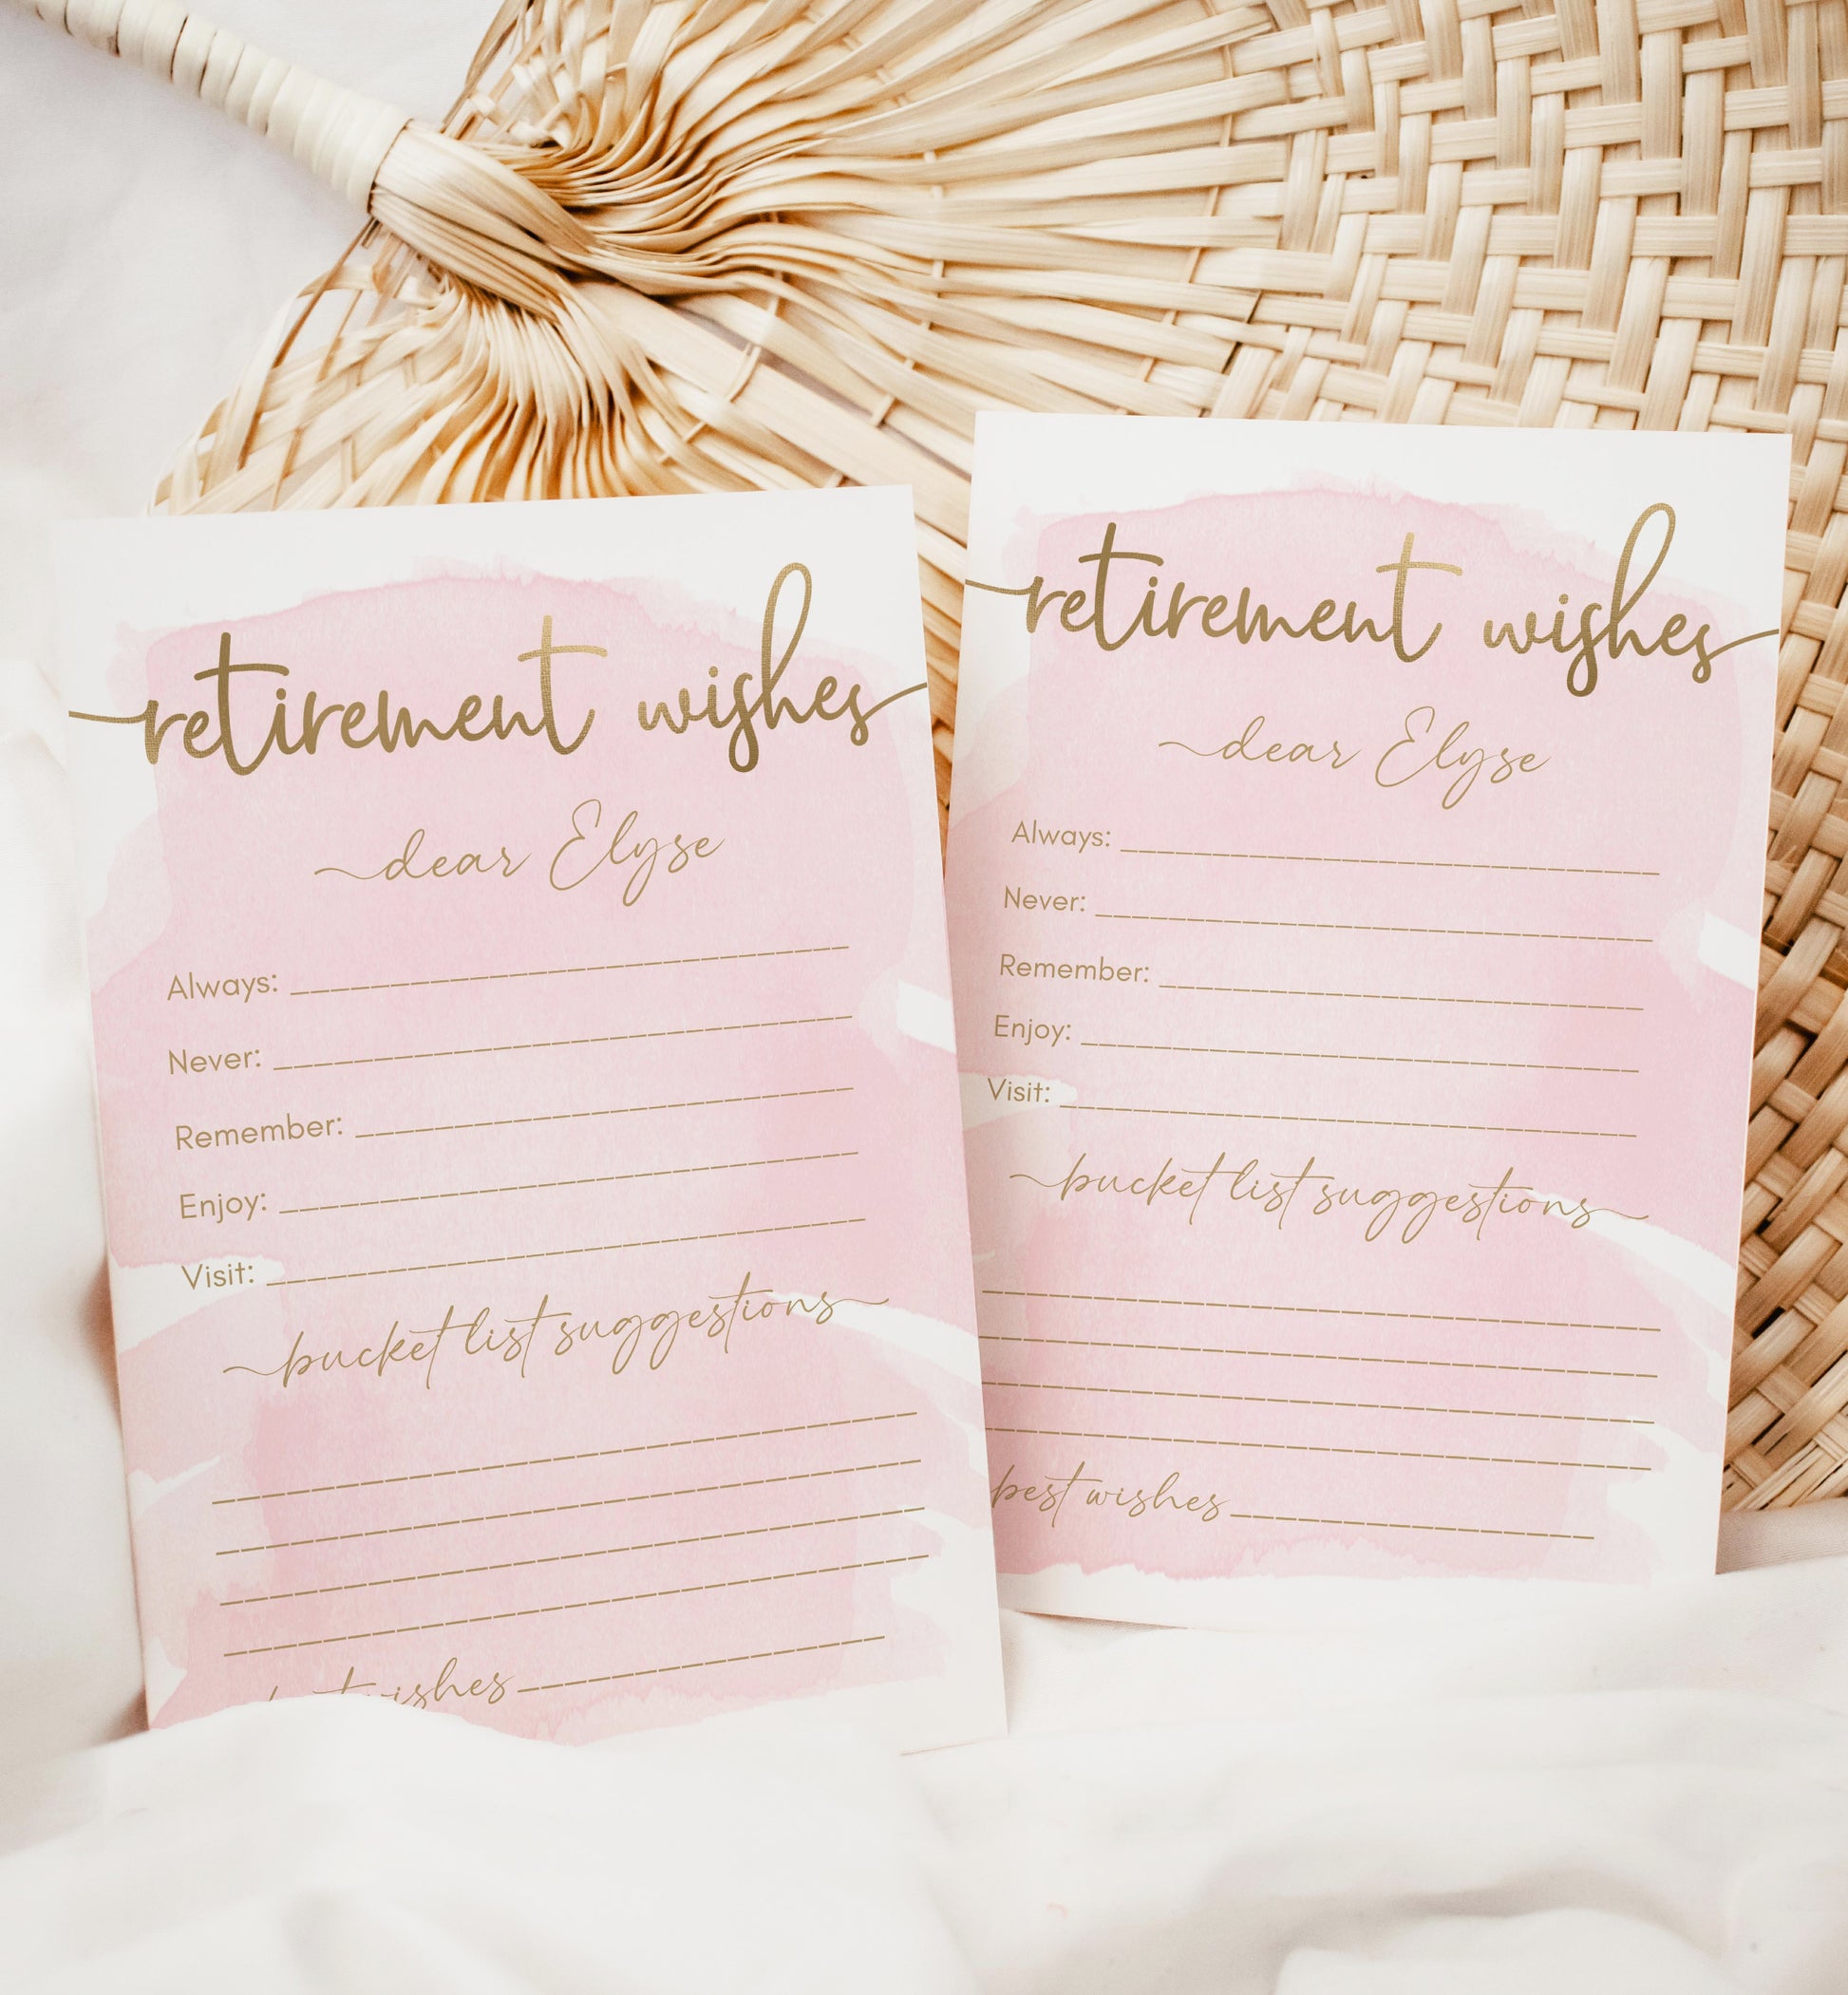 retirement wishes
dear Elyse
Always:
Never:
Remember:
Enjoy:
Visit:
bucket list suggestions
best wishes
retirement wishes
dear Elyse
Always:
Never:
Remember:
Enjoy:
Visit:
bucket list suggestions
best wishes